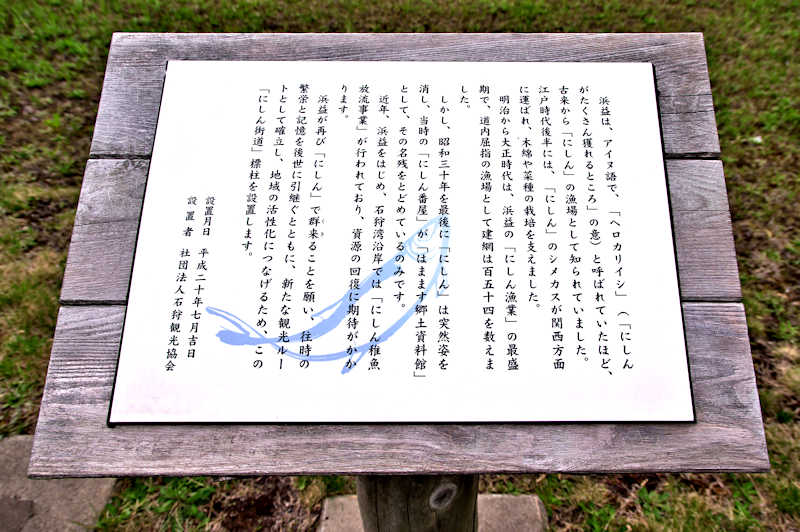 浜益は、アイヌ語で、「ヘロカリイシ」(「にしん
がたくさん獲れるところ」の意)と呼ばれていたほど、
古来から「にしん」の漁場として知られていました。
江戸時代後半には、「にしん」のシメカスが関西方面
に運ばれ、木綿や菜種の栽培を支えました。
明治から大正時代は、浜益の「にしん漁業」の最盛
期で、道内屈指の漁場として建網は百五十四を数えま
した。
しかし、昭和三十年を最後に「にしん」は突然姿を
消し、当時の「にしん番屋」が「はまます郷土資料館」
として、その名残をとどめているのみです。
近年、浜益をはじめ、石狩湾沿岸では「にしん稚魚
放流事業」が行われており、資源の回復に期待がかか
ります。
浜益が再び「にしん」で群来ることを願い、往時の
繁栄と記憶を後世に引継ぐとともに、新たな観光ルー
トとして確立し、地域の活性化につなげるため、この
「にしん街道」標柱を設置します。
設置月日 平成二十年七月吉日
設置者 社団法人石狩観光協会